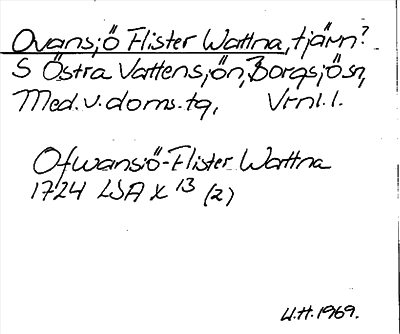 Ovansjö Flister Wattna, tjärn?
S Östra Vattensjön, Borgsjösn,
Med.v.doms.tg, Vrnl.l.
Ofwansiö-Flister Wattna
1724 LSA X 13 (2)
U.H. 1969.